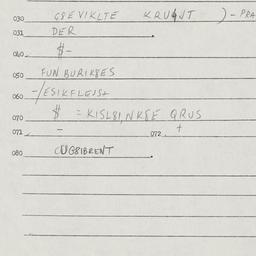 030 GSEVIKLTE KRU4NT ) - PRA
031 DER
040 $-
050 FUN BURIK8ES
060 -/ESIKFLEJS+
070 $ = KISL8I,NKSE QRUS
071 - 072 +
080 CUGSIBRENT